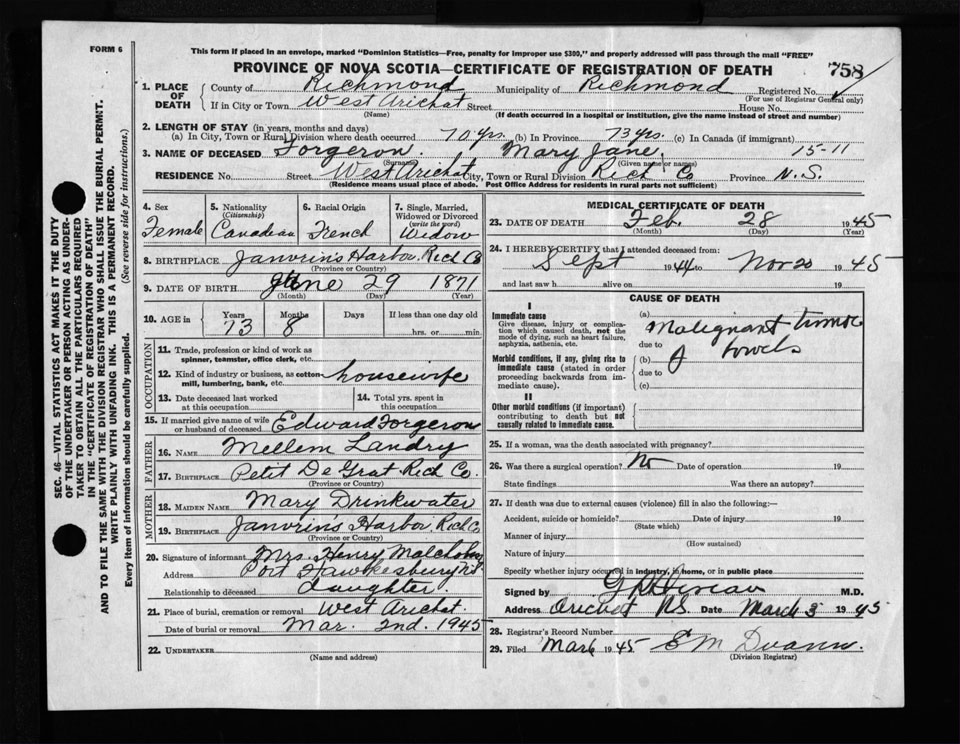 FORM 6
This form if placed in an envelope, marked "Dominion Statistics—Free, penalty for improper use $300," and properly addressed will pass through the mail "FREE"
PROVINCE OF NOVA SCOTIA—CERTIFICATE OF REGISTRATION OF DEATH
758
1. PLACE OF DEATH
County of Richmond Municipality of Richmond Registered No.
(For use of Registrar General only)
If in City or Town West Arichat Street House No.
(Name) (If death occurred in a hospital or institution, give the name instead of street and number)
2. LENGTH OF STAY (in years, months and days)
(a) In City, Town or Rural Division where death occurred 70 yrs. (b) In Province 73 yrs. (c) In Canada (if immigrant)
3. NAME OF DECEASED Forgeron. Mary Jane. 15-11
(Surname) (Given name or names)
RESIDENCE No. Street West Arichat City, Town or Rural Division Rich Co Province N.S.
(Residence means usual place of abode. Post Office Address for residents in rural parts not sufficient)
SEC. 46—VITAL STATISTICS ACT MAKES IT THE DUTY
OF THE UNDERTAKER OR PERSON ACTING AS UNDER-
TAKER TO OBTAIN ALL THE PARTICULARS REQUIRED
IN THE "CERTIFICATE OF REGISTRATION OF DEATH"
AND TO FILE THE SAME WITH THE DIVISION REGISTRAR WHO SHALL ISSUE THE BURIAL PERMIT.
WRITE PLAINLY WITH UNFADING INK. THIS IS A PERMANENT RECORD.
Every item of information should be carefully supplied. (See reverse side for instructions.)
4. Sex Female
5. Nationality (Citizenship) Canadian
6. Racial Origin French
7. Single, Married, Widowed or Divorced (write the word) Widow
8. BIRTHPLACE Janvrins Harbor. Rich Co
(Province or Country)
9. DATE OF BIRTH June 29 1871
(Month) (Day) (Year)
10. AGE in Years Months Days If less than one day old
73 8 hrs. or min.
OCCUPATION
11. Trade, profession or kind of work as spinner, teamster, office clerk, etc.
12. Kind of industry or business, as cotton-mill, lumbering, bank, etc. housewife
13. Date deceased last worked at this occupation
14. Total yrs. spent in this occupation
15. If married give name of wife or husband of deceased Edward Forgeron
FATHER
16. NAME Mellem Landry
17. BIRTHPLACE Petit De Grat Rich Co.
(Province or Country)
MOTHER
18. MAIDEN NAME Mary Drinkwater
19. BIRTHPLACE Janvrins Harbor. Rich C
(Province or Country)
20. Signature of informant Mrs. Henry
Address Port Hawkesbury N.S.
Relationship to deceased daughter.
21. Place of burial, cremation or removal West Arichat.
Date of burial or removal Mar. 2nd. 1945
22. UNDERTAKER
(Name and address)
MEDICAL CERTIFICATE OF DEATH
23. DATE OF DEATH Feb. 28 1945
(Month) (Day) (Year)
24. I HEREBY CERTIFY that I attended deceased from:
Sept 1944 to Nov 20 1945
and last saw h alive on 19
CAUSE OF DEATH
I
Immediate cause
Give disease, injury or complication which caused death, not the mode of dying, such as heart failure, asphyxia, asthenia, etc.
(a) Malignant tumor
due to
Morbid conditions, if any, giving rise to immediate cause (stated in order proceeding backwards from immediate cause).
(b) of bowels
due to
(c)
II
Other morbid conditions (if important) contributing to death but not causally related to immediate cause.
25. If a woman, was the death associated with pregnancy?
26. Was there a surgical operation? No Date of operation 19
State findings Was there an autopsy?
27. If death was due to external causes (violence) fill in also the following:
Accident, suicide or homicide? Date of injury 19
(State which)
Manner of injury
(How sustained)
Nature of injury
Specify whether injury occurred in industry, in home, or in public place
Signed by M.D.
Address Arichat N.S. Date March 3 1945
28. Registrar's Record Number
29. Filed Mar 6 1945 E M
(Division Registrar)